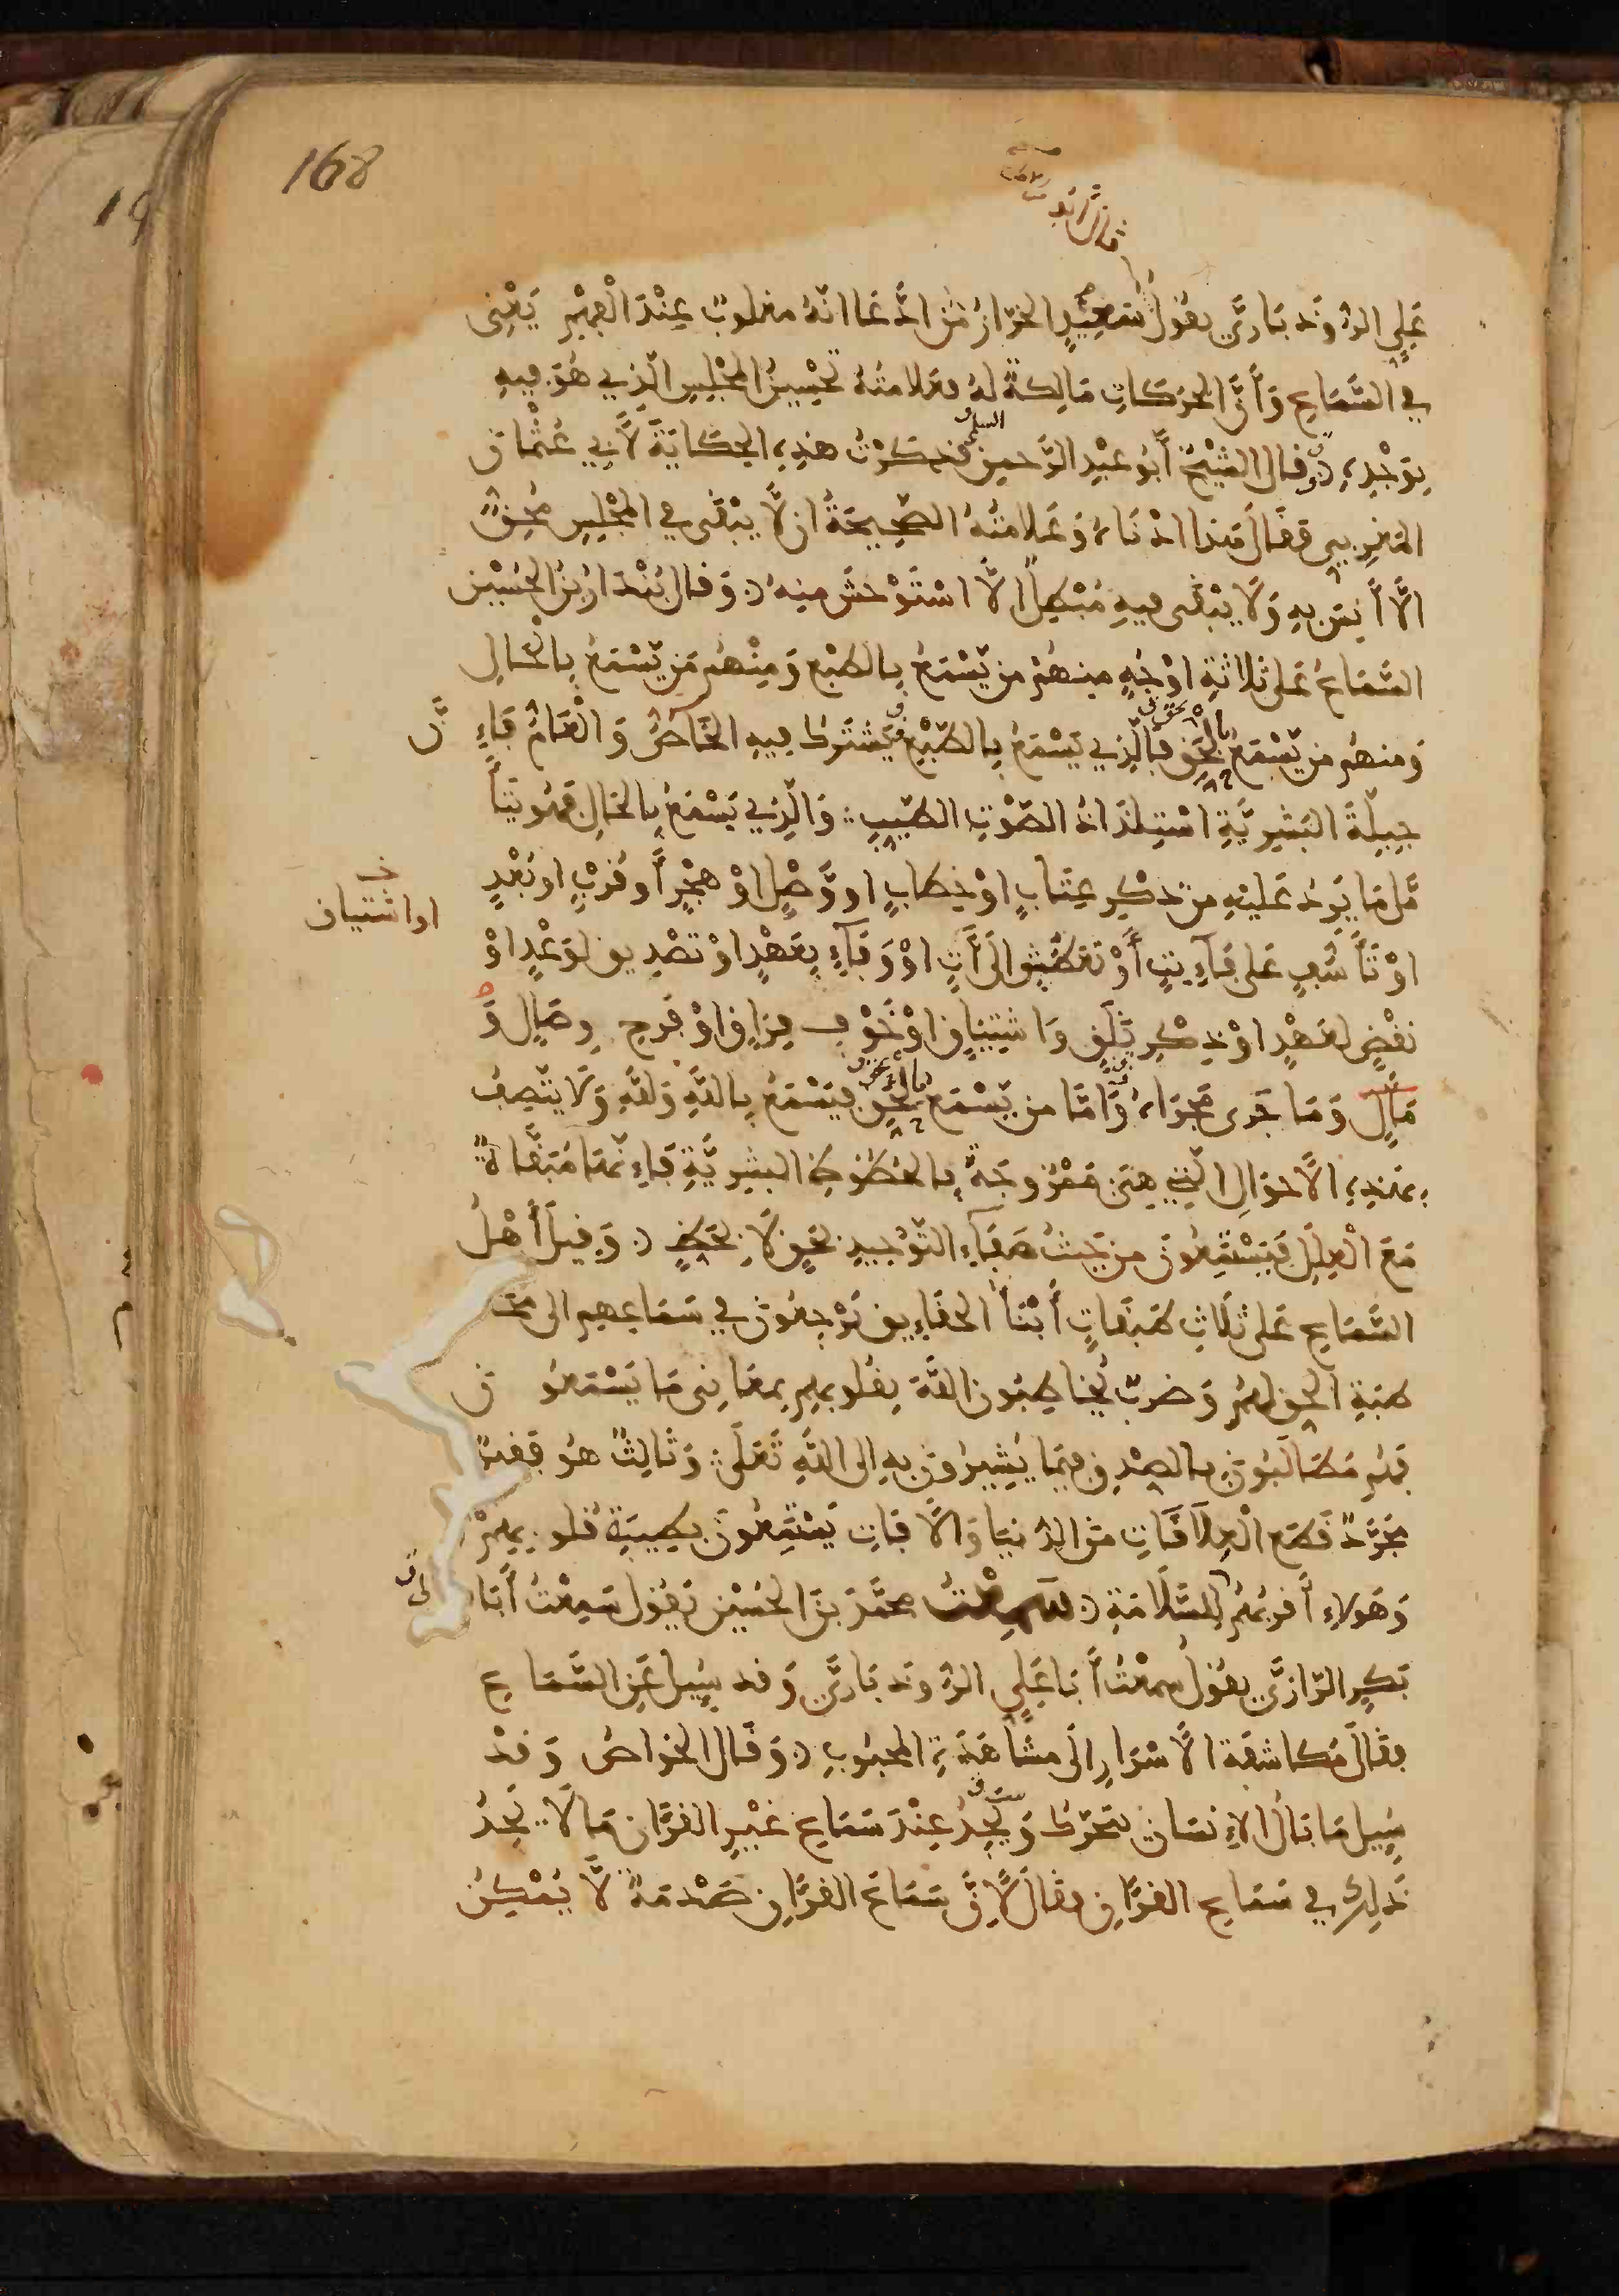 168
قال أبو
عَلِيٍّ الرُّوذَبَارِيَّ يقُولُ سَعِيدٍ الخرّازُ مَنِ ادَّعَا انّهُ مغلوبٌ عِنْدَ الْفَهْمِ يَعْنِى
في السَّمَاعِ وَأَنَّ الحَرَكَاتِ مَالِكةٌ لهُ فعَلامتُهُ تحْسِينُ المَجْلِسِ الّذِي هُوَ فِيهِ
بِوَجْدِهِ قال الشيْخُ أَبُو عَبْدِ الرَّحمنِ السلمي فذكَرْتُ هذِهِ الحِكَايَةَ لأَبِي عُثْمَانَ
المَغْرِبِيِ فقَالَ هَذا ادْنَاهُ وَعَلامَتُهُ الصَّحِيحَةُ ان لَّا يبْقَى فِي المَجْلِسِ مُحِقٌّ
الَّا أَنِسَ بِهِ وَلَا يبْقَى فيهِ مُبْطِلٌ الَّا اسْتَوْحَشَ مِنهُ وَقال بُنْدَارُ بنُ الحُسَيْنِ
السَّمَاعُ عَلى ثَلَاثَةِ اوْجُهٍ مِنهُمْ من يّسْمَعُ بِالطبْعِ وَمِنْهُم مَن يّسْمَعُ بِالحَالِ
وَمنهُم من يّسْمَعُ بالحَقِّ فالّذِي يَسْمَعُ بِالطّبْعِ يَشْتَرِكُ فِيهِ الخَاصُّ وَالْعَامُّ فَإِنَّ
جِبِلّةَ البَشَرِيَّةِ اسْتِلْذَاذُ الصَّوْتِ الطَّيّبِ وَالّذِي يَسْمَعُ بِالحَالِ فَهُو يَتأَ
مَّل مَا يَرِدُ عَليْهِ من ذكْرِ عِتَابٍ اوْ خِطابٍ او وَّصْلٍ اوْ هَجْرٍ أَو قُرْبٍ او بُعْدٍ
او اشتياق
اوْ تَأَسُّفٍ عَلى فَآئِتٍ أَوْ تَعَطُّشٍ الَى آتٍ اوْ وَفَآءٍ بِعَهْدٍ اوْ تصْدِيقٍ لوَعْدٍ اوْ
نقْضٍ لعَهْدٍ اوْ ذِكْرِ قَلَقٍ وَاشْتِيَاقٍ اوْ خَوْفِ فِرَاقٍ اوْ فَرَحِ وِصَالٍ وَ
مَالٍ وَمَا جَرى مَجْرَاهُ وَأَمَّا من يَسْمَعُ بالحَقِّ فيَسْمَعُ بِاللَّهِ وَلِلَّهِ وَلَا يَتّصِفُ
بهَذِهِ الأَحوَالِ الّتِي هِيَ مَمْزُوجَةٌ بِالحُظُوظِ البشَرِيَّةِ فَإِنّهَا مُبَقَّاةٌ
مَعَ الْعِلَلِ فَيَسْمَعُونَ من حَيْثُ صَفَآءِ التّوْحِيدِ بحَقٍّ لَا بحَظٍّ وَقِيلَ أَهْلُ
السَّمَاعِ عَلى ثَلَاثِ طَبَقَاتٍ أَبْنَآءُ الحقَائِقِ يَرْجِعُونَ فِي سَمَاعِهِم الى مخَا
طَبَةِ الحَقِّ لهُمْ وَضَربٌ يُخاطِبُونَ اللَّهَ بِقُلُوبِهِم بِمعَانِى مَا يَسْمَعُونَ
فهُم مُطَالَبُونَ بِالصِّدْقِ فِيمَا يُشِيرُونَ بِهِ الى اللَّهِ تَعَلَى وَثَالِثٌ هُوَ فقِيرٌ
مُجَرَّدٌ قَطعَ الْعِلَاقَاتِ مِنَ الدُّنيَا وَالآفَاتِ يَسْمَعُونَ بِطِيبَةِ قُلُوبِهِمْ
وَهَؤلاءِ أَقرَبُهُم الى السَّلَامَةِ سَمِعْتُ محمَّدَ بنَ الحُسَيْنِ يَقُولُ سَمِعْتُ أَبَا
بَكرٍ الرّازِيَّ يقُولُ سَمعْتُ أَبَا عَلِيٍّ الرُّوذَبَارِيَّ وَقد سُئِلَ عَنِ السَّمَاعِ
فقَالَ مُكَاشَفَةُ الأَسْرَارِ الَى مشَاهَدَةِ المَحبُوبِ وَقَال الخَوَاصُ وَقَدْ
سُئِلَ مَا بَالُ الإِنسَانِ يتحَرَّكُ وَيَجِدُ عِنْدَ سَمَاعِ غَيْرِ القُرْءَانِ مَا لَا يَجِدُ
ذَلِكَ فِي سَمَاعِ القُرْءَانِ فقَالَ لأَنَّ سَمَاعَ القُرْءَانِ صَدْمَةٌ لَّا يُمْكِنُ